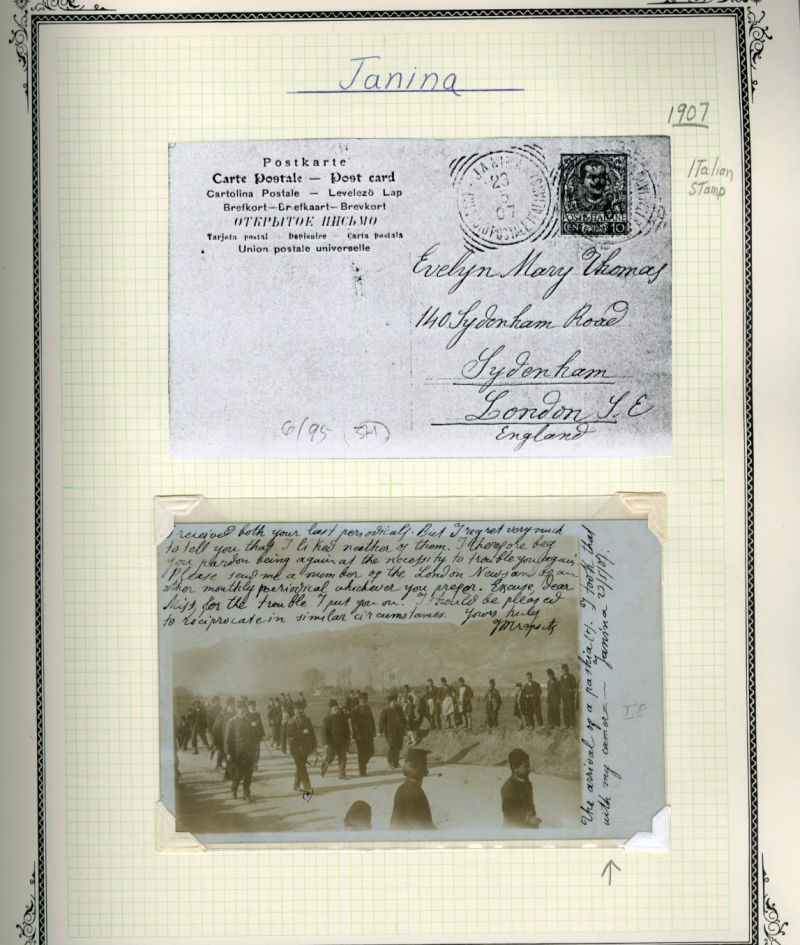 Janina
1907
Italian
Stamp
Postkarte
Carte Postale – Post card
Cartolina Postale – Levelező Lap
Brefkort—Briefkaart—Brevkort
ОТКРЫТОЕ ПИСЬМО
Tarjeta postal Dopisnice Carta postala
Union postale universelle
JANINA
23
07
POSTE ITALIANE
CENT. 10
Evelyn Mary Thomas
140 Sydenham Road
Sydenham
London S.E
England
6/95
I received both your last periodicals. But I regret very much
to tell you that I liked neither of them. I therefore beg
you pardon being again at the necessity to trouble you again
Please send me a number of the London News and of an
other monthly periodical whichever you prefer. Excuse, dear
Miss, for the trouble I put you on. I should be pleased
to reciprocate in similar circumstances. Yours truly
The arrival of a pashia (+). I took that
with my camera — Janina